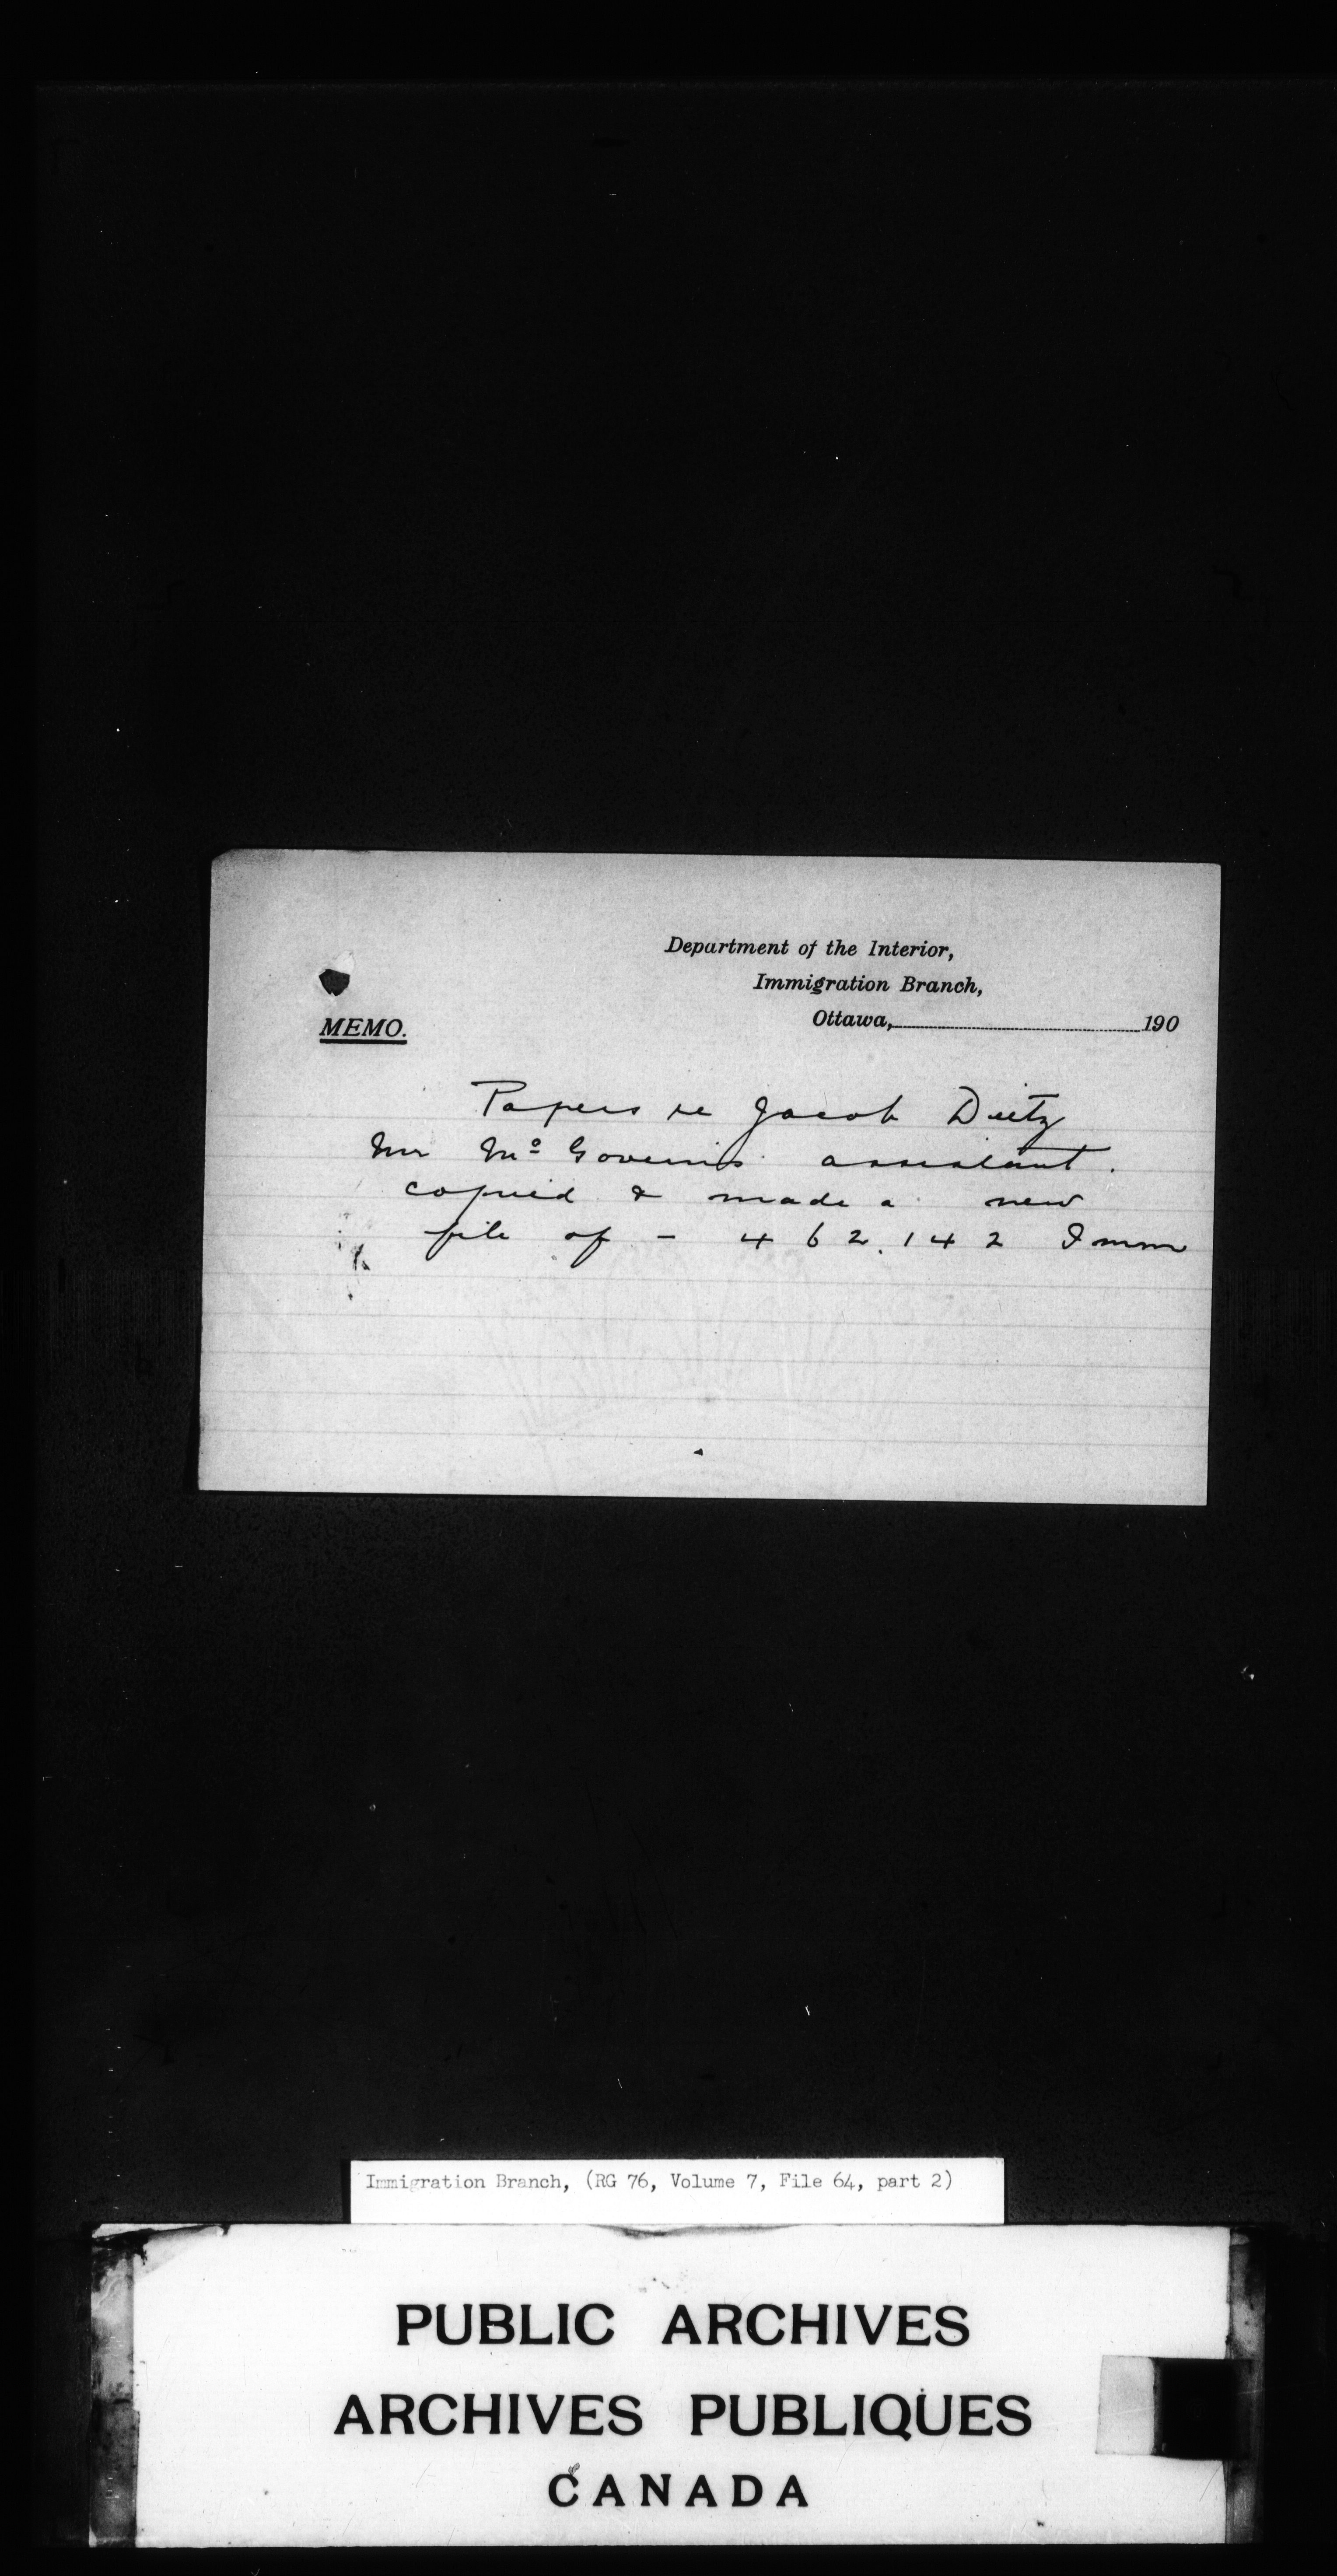 Department of the Interior,
Immigration Branch,
MEMO.
Ottawa, 190
Papers re Jacob Dietz
Mr McGovern's assistant.
copied & made a new
file of - 462.142 Imm
Immigration Branch, (RG 76, Volume 7, File 64, part 2)
PUBLIC ARCHIVES
ARCHIVES PUBLIQUES
CANADA